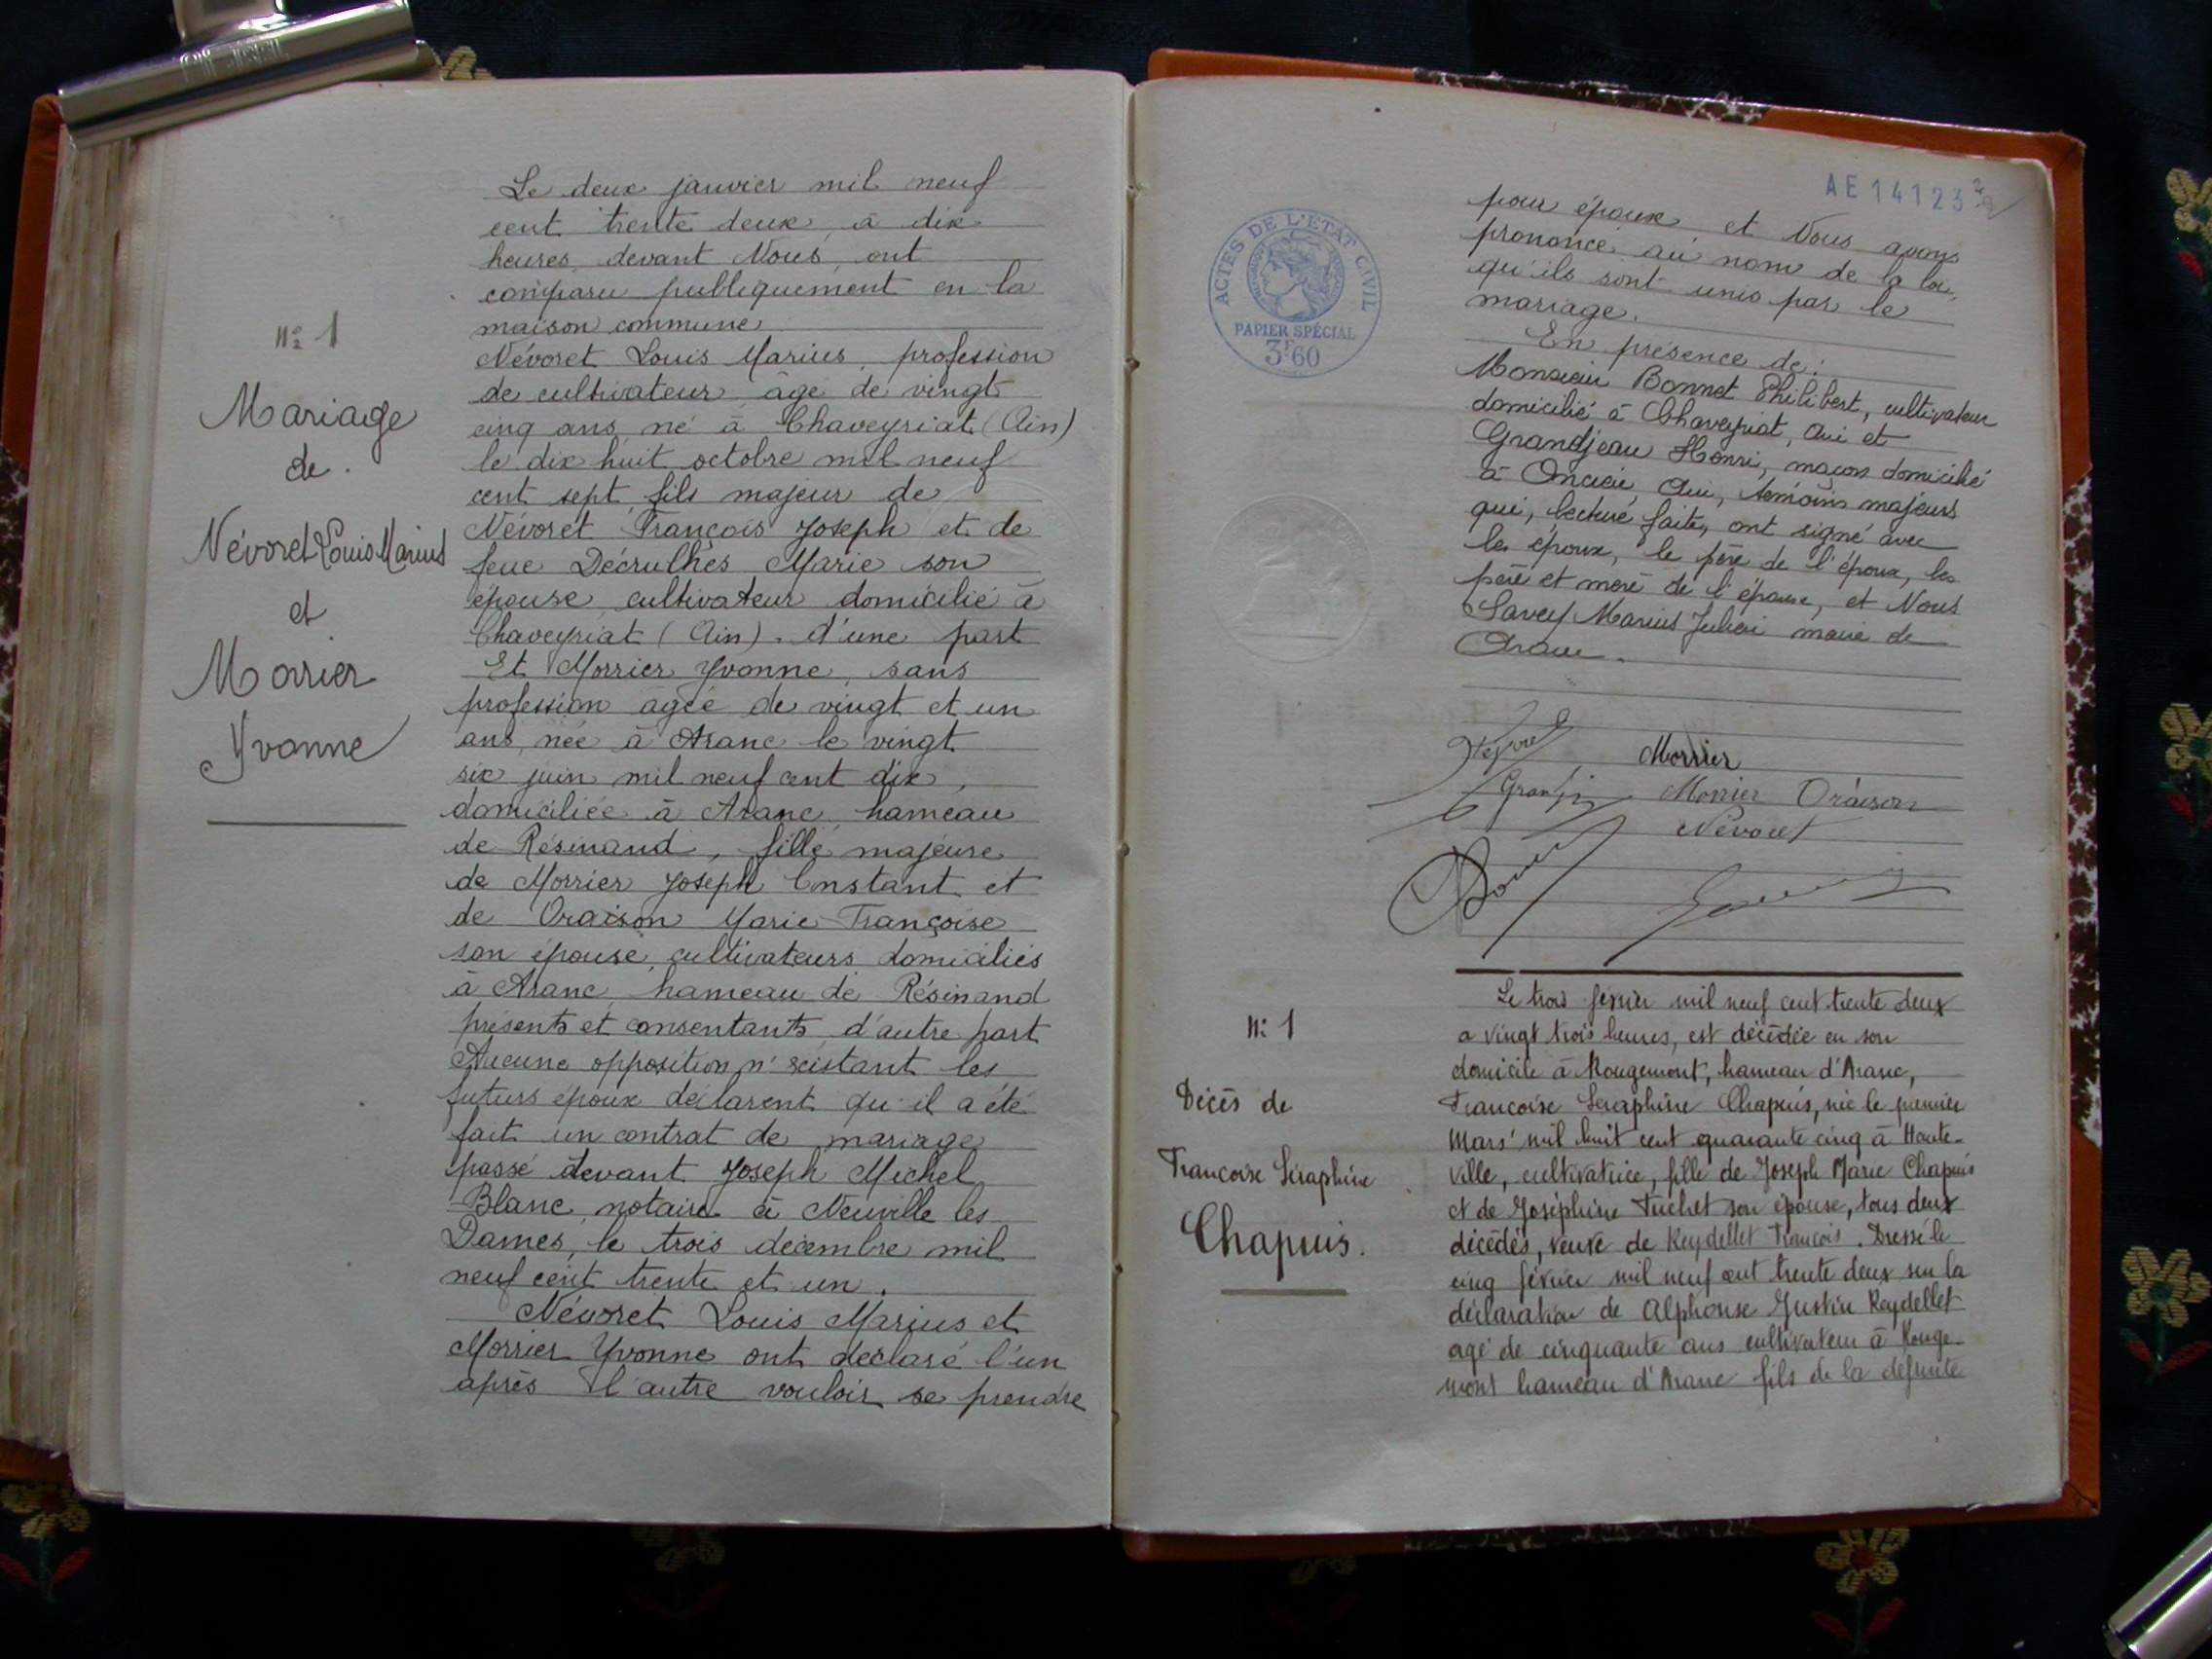 N° 1
Mariage
de
Névoret Louis Marius
et
Morrier
Yvonne
Le deux janvier mil neuf
cent trente deux à dix
heures, devant Nous, ont
comparu publiquement en la
maison commune
Névoret Louis Marius, profession
de cultivateur âgé de vingt
cinq ans, né à Chaveyriat (Ain)
le dix huit octobre mil neuf
cent sept, fils majeur de
Névoret François Joseph et de
feue Décrulhes Marie son
épouse, cultivateur domicilié à
Chaveyriat (Ain). d'une part
Et Morrier Yvonne, sans
profession âgée de vingt et un
ans, née à Aranc le vingt
six juin mil neuf cent dix,
domiciliée à Aranc, hameau
de Résinand, fille majeure
de Morrier Joseph Constant et
de Oraison Marie-Françoise
son épouse, cultivateurs domiciliés
à Aranc, hameau de Résinand
présents et consentants, d'autre part
Aucune opposition n'existant les
futurs époux déclarent qu'il a été
fait un contrat de mariage
passé devant Joseph Michel
Blanc, notaire à Neuville les
Dames, le trois décembre mil
neuf cent trente et un.
Névoret Louis Marius et
Morrier Yvonne ont déclaré l'un
après l'autre vouloir se prendre
AE 14123
ACTES DE L'ETAT CIVIL
PAPIER SPÉCIAL
3F60
pour époux et Nous avons
prononcé au nom de la loi,
qu'ils sont unis par le
mariage.
En présence de:
Monsieur Bonnet Philibert, cultivateur
domicilié à Chaveyriat, Ain et
Grandjean Henri, maçon domicilié
à Oncieu, Ain, témoins majeurs
qui, lecture faite, ont signé avec
les époux, le père de l'époux, les
père et mère de l'épouse, et Nous
Savey Marius Julien maire de
Aranc.
Morrier
Morrier Oraison
Névoret
N° 1
Décès de
Francoise Séraphine
Chapuis.
Le trois février mil neuf cent trente deux
a vingt trois heures, est décédée en son
domicile à Rougemont, hameau d'Aranc,
Francoise Séraphine Chapuis, née le premier
Mars mil huit cent quarante cinq à Haute-
ville, cultivatrice, fille de Joseph Marie Chapuis
et de Joséphine Tuchet son épouse, tous deux
décédés, veuve de Reydellet François. Dressé le
cinq février mil neuf cent trente deux sur la
déclaration de Alphonse Justin Reydellet
agé de cinquante ans cultivateur à Rouge-
mont hameau d'Aranc fils de la défunte